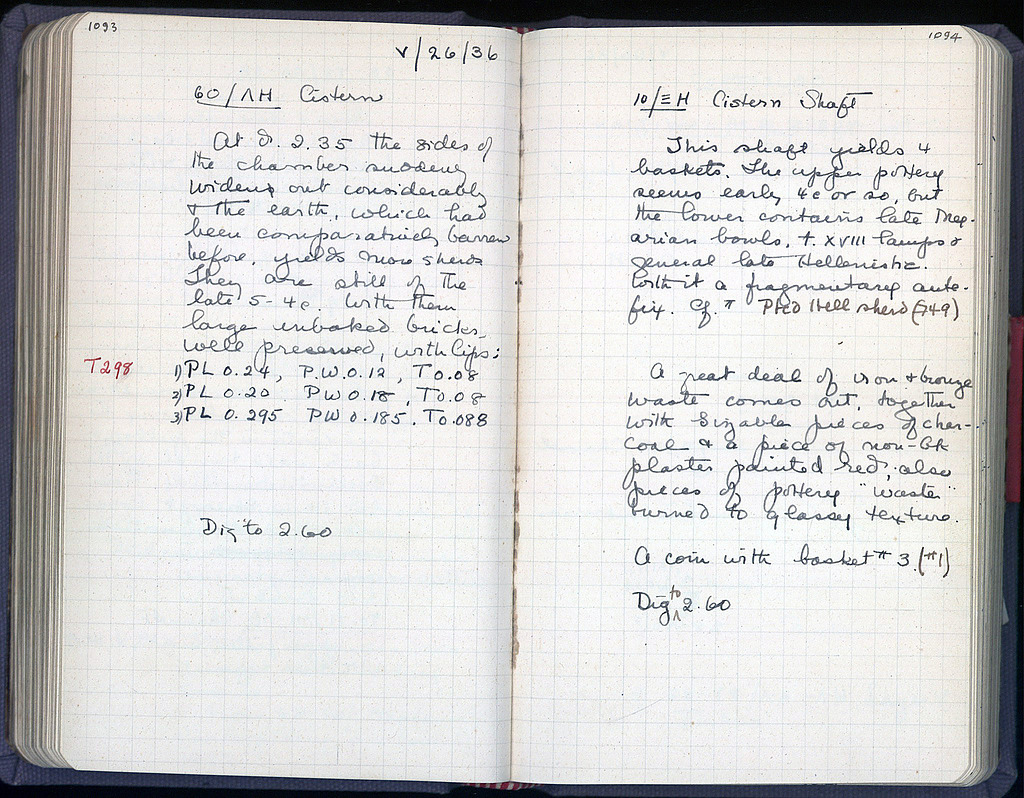 1093
V/26/36
60/ΛΗ Cistern
At d. 2.35 the sides of
the chamber suddenly
widens out considerably
+ the earth, which had
been comparatively barren
before, yields more sherds
They are still of the
late 5-4c. With them
large unbaked bricks,
well preserved, with lips:
T298 1) PL 0.24, P.W. 0.12, T 0.08
2) PL 0.20 PW 0.18, T 0.08
3) PL 0.295 PW 0.185. T 0.088
Dig to 2.60
1094
10/ΞΗ Cistern Shaft
This shaft yields 4
baskets. The upper pottery
seems early 4c or so, but
the lower contains late Meg-
arian bowls, t. XVIII lamps &
general late Hellenistic.
With it a fragmentary ante-
fix. Cf. # Pted Hell sherd (749)
A great deal of iron + bronze
waste comes out, together
with sizable pieces of char-
coal & a piece of non-Gk
plaster painted red; also
pieces of pottery "waster"
burned to glassy texture.
A coin with basket # 3. (#1)
Dig to 2.60